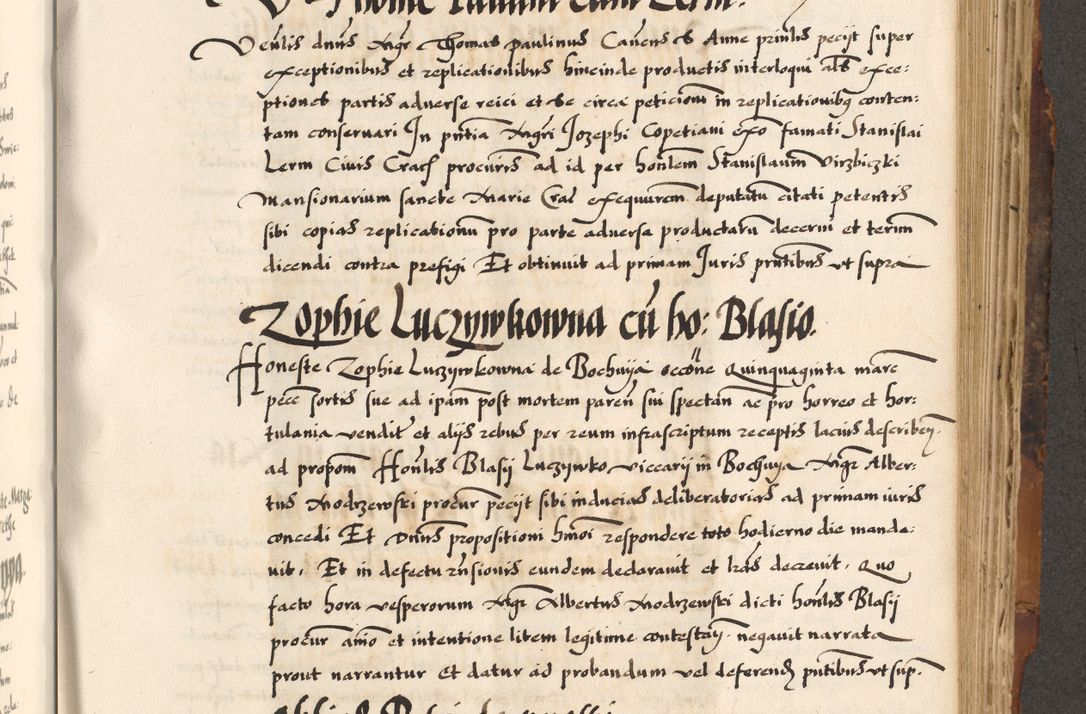 Venlis dnus Mgr Thomas paulinus Canens S Anne prinlis pecijt super
exceptionibus et replicationibus hincinde productis interloqui als exce:
ptiones partis adverse reici et se circa peticionem in replicationibus conten-
tam conservari In pntia Mgri Jozephi Copetiani exo famati Stanislai
Lerm Civis Crac procuris ad id per honlem Stanislaum Virzbiczki
Mansionarium sancte Marie Crac exequutem deputatu citati petentis
sibi copias replicationu pro parte adversa productaru decerni et termn
dicendi contra prefigi Et obtinuit ad primam Juris pntibus ut supra
Zophie Luczywkowna cu ho: Blasio.
Honeste Zophie Luczywkowna de Bochnya occone Quinquaginta marc
pecc sortis sue ad ipam post mortem paren sui spectan ac pro horreo et hor:
tulania vendit et alijs rebus per reum infrascriptum receptis lacius describen.
ad propom Honlis Blasij Luczywko viccarij in Bochnya Mgr Alber-
tus Modrzewski procur pecijt sibi inducias deliberatorias ad primam iuris
concedi Et Dnus propositioni hmoi respondere toto hodierno die manda:
vit. Et in defectu rnsionis eundem declaravit et lras decrevit. Quo
facto hora vesperorum Mgr Albertus Modrzewski dicti honlis Blasij
procur animo et intentione litem legitime contestan. negavit narrata
prout narrantur Et datur ad probandum vel deferend pntibus ut sup.